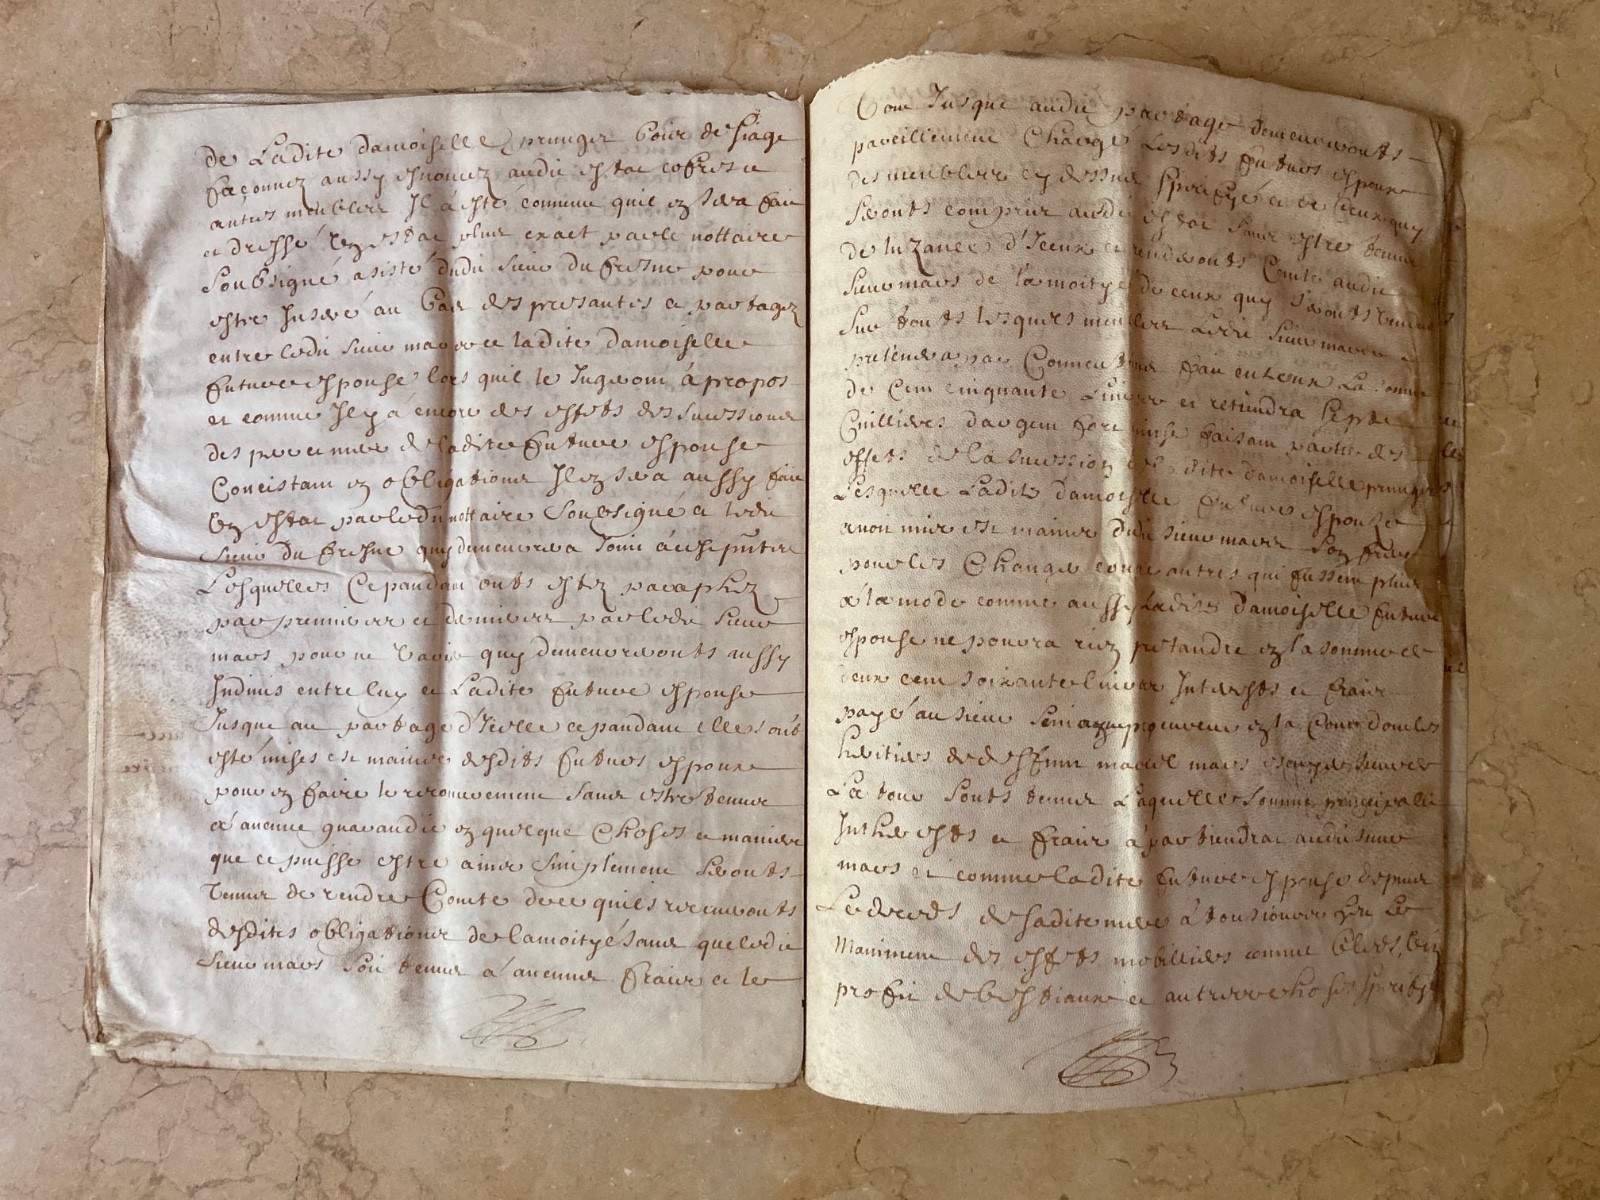 de Ladite damoiselle prunger Bois de siage
façonnez aussy esnoncez audit estat coffres et
autres meubles Il a esté convenu quil en sera fait
et dressé un estat plus exact par le nottaire
soubsigné asisté dudit sieur du fresne pour
estre Inseré au bas des presantes et partagez
entre ledit sieur mars et ladite damoiselle
future esponse lors quil le Jugeront à propos
et comme Il y à encore des effets des sucessions
des pere et mere de ladite future esponse
Concistant en obligations Il en sera aussy fait
un estat par ledit nottaire soubsigné et ledit
sieur du fresne quy demeurera Joint à ces pntes
Lesquelles Cepandant onts estez paraphez
par premiere et derniere par ledit sieur
mars pour ne varier quy demeureronts aussy
Indivis entre luy et Ladite future esponse
Jusque au partage d'Icelle cepandant elles onts
esté mises es mains desdits futurs espoux
pour en faire le recouvrement sans estre tenus
à aucune garandie en quelque Choses et maniere
que ce puisse estre ains simplement seronts
tenus de rendre Comte de ce quils recevronts
desdites obligations de la moityé sans que ledit
sieur mars soit tenus à aucuns fraix et le
tout Jusque audit partage demeureronts
pareillement Chargé Lesdits futurs espoux
des meubles cy dessus speciffyé et de ceux quy
seronts compris audit estat sans estre tenus
de luzance d'Iceux et rendronts Comte audit
sieur mars de la moityé de ceux quy seronts
sur touts lesquels meubles Ledit sieur mars
pretendra par fait entreux La somme
de Cent cinquante Livres et retiendra sept
Cuillieres dargent fort faisant partie des
effets de la sucession de ladite damoiselle prunger
Lesquelle Ladite damoiselle future esponse
avoir mis es mains dudit sieur mars son frere
pour les Change contre autres qui fussent plus
à la mode comme aussy Ladite damoiselle future
esponse ne poura rien pretandre en la somme de
deux cent soixante livres Interests et fraix
payé au sieur procureur en la Cour dont les
heritiers de deffunt marcel mars
La tout sonts tenus Laquelle somme principalle
Intherests et fraix apartiendrat audit sieur
mars et comme ladite future esponse depuis
Le deceds de sadite mere à tousiours Eu Le
Maniment des effets mobilliers comme bleds, vin
profit de bestiaux et autres choses